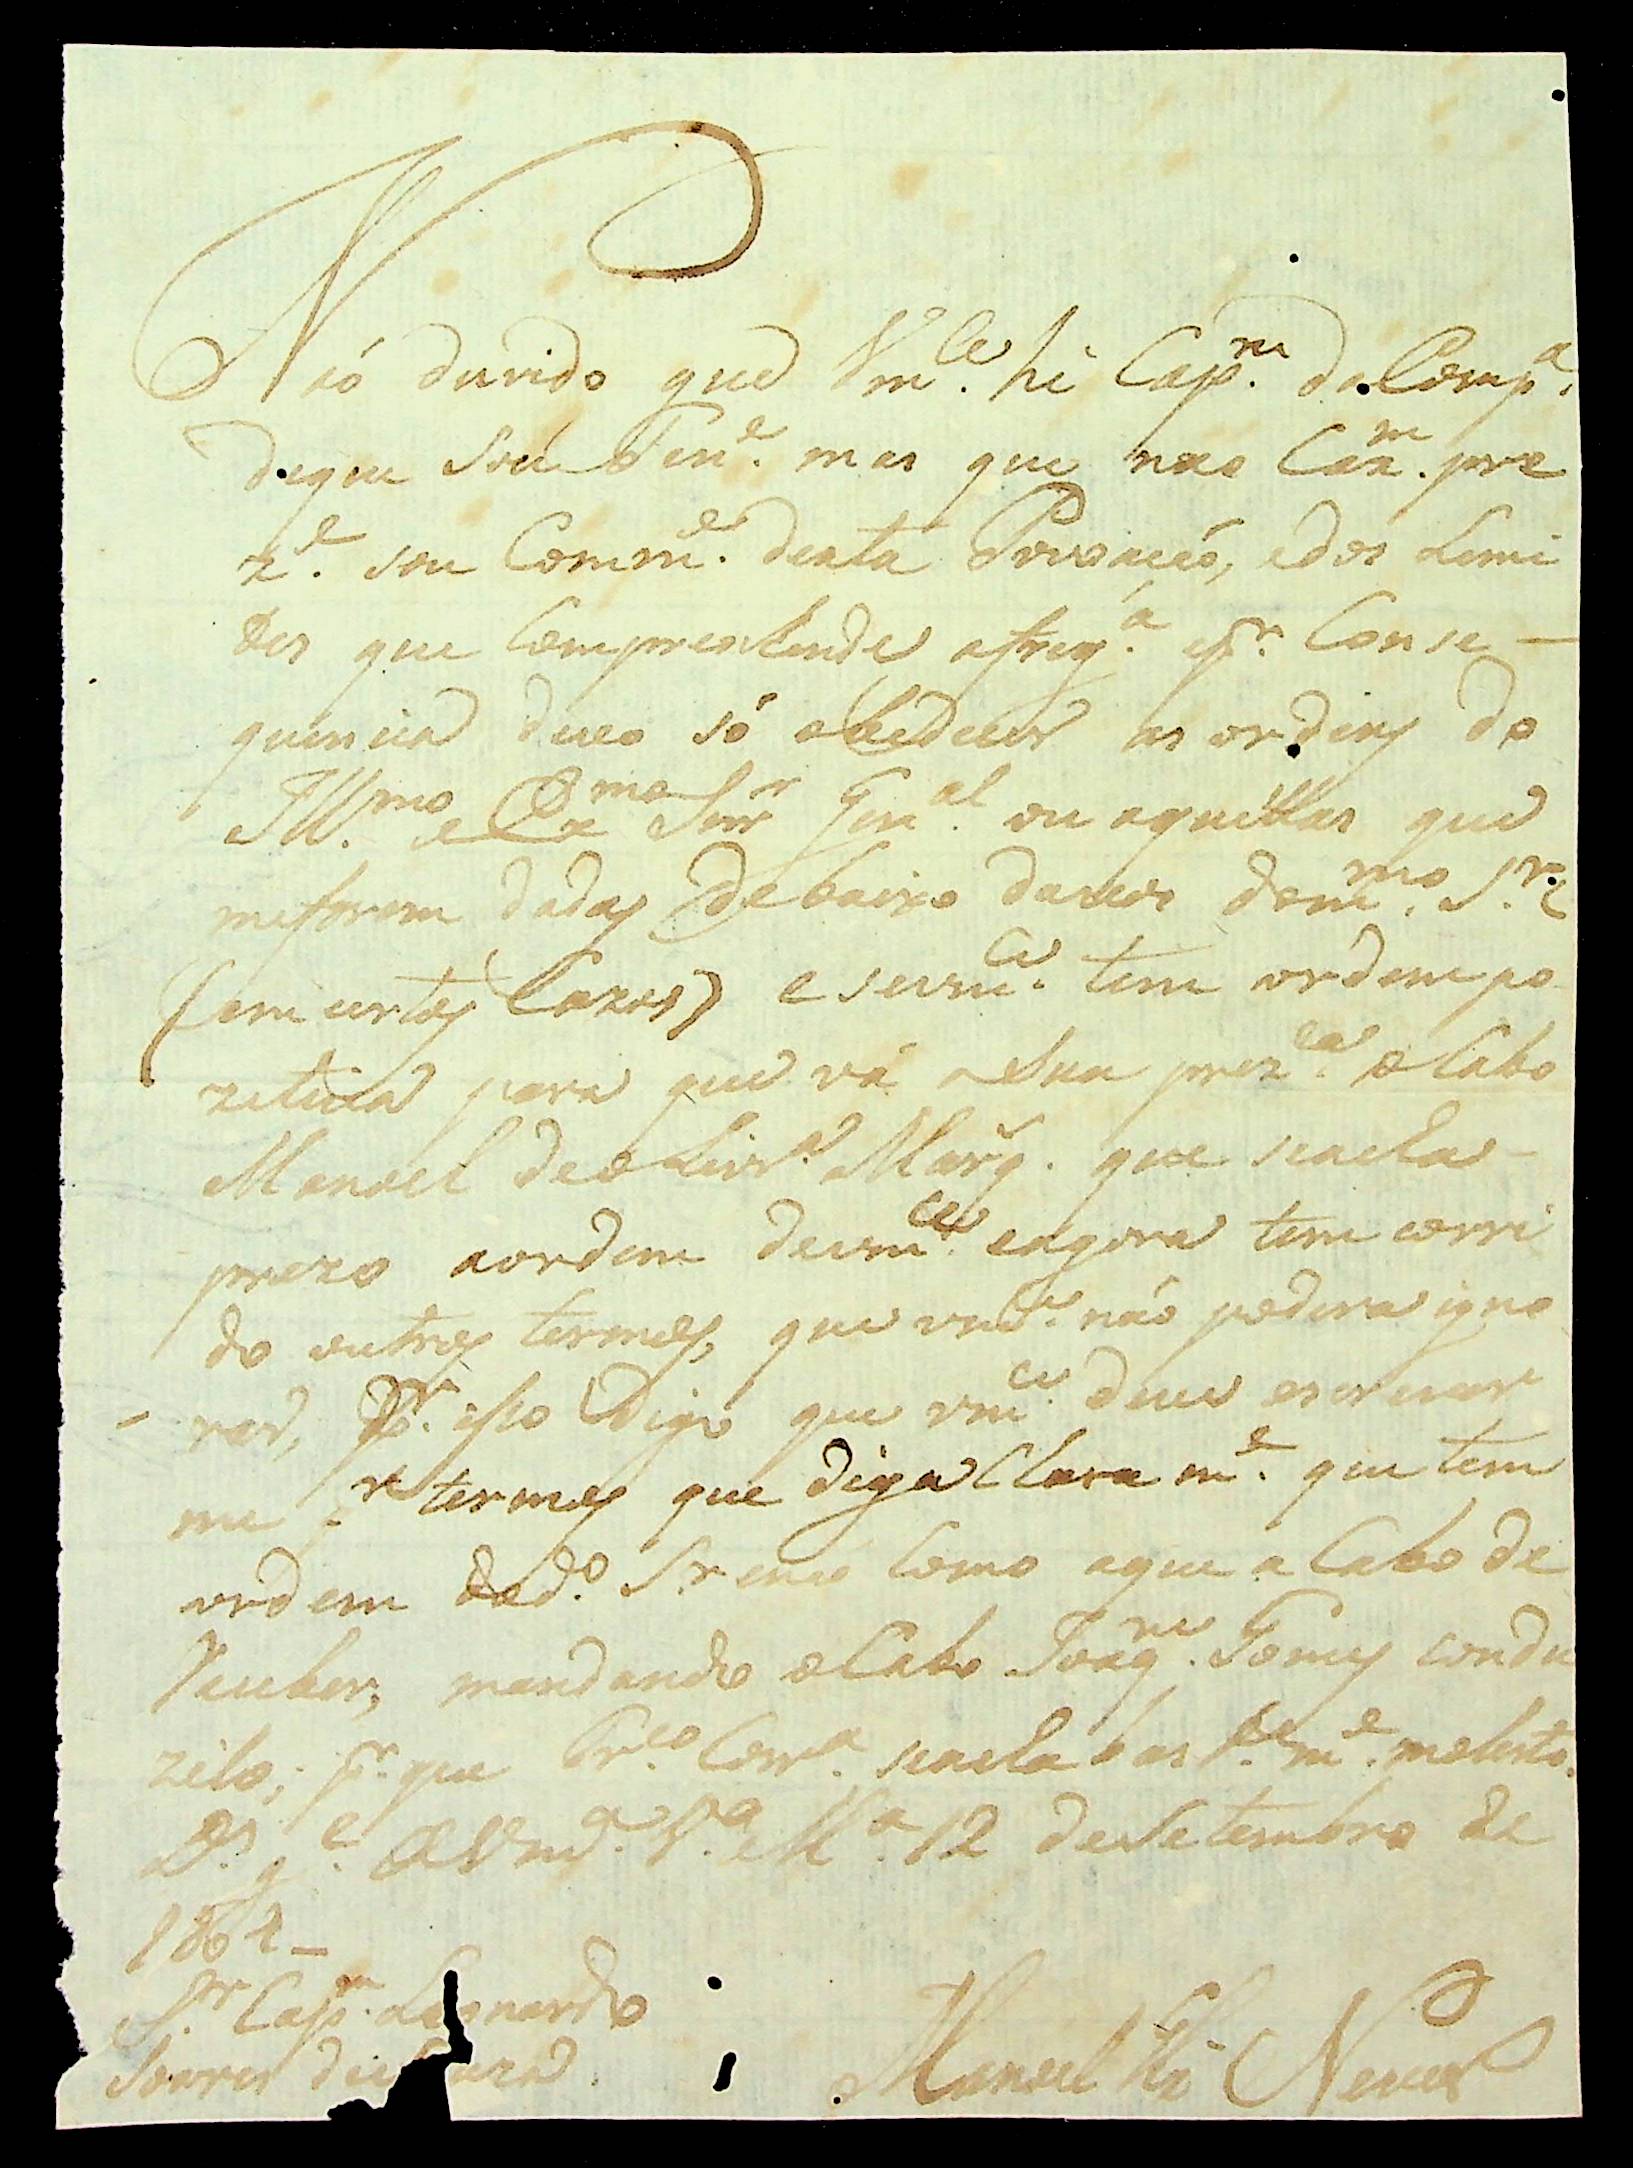 Não duvido que Vm.ce hé Cap.m da Comp.a
deque Sou Ten.e mas que nas Cau.m pre
z.e sou Comm.e desta Povoação, e dos Limi
tes que Comprehende afreg.a e p.r Conse-
quencia devo só obedecer as ordens do
Ill.mo e Ex.mo Snr Gen.al ou aquellas que
meforem dadas debaixo da voz dom.mo S.r
(em certos Cazos) e sevm.ce tem ordem po
zetiva para que vá a Sua prez.ca o Cabo
Manoel de oLivr.a Marq. que seacha
prezo aordem devm.ce eagora tem corri
do outros termos, que vm.ce não podera igno
rar, P.r isso Digo que vm.ce deve escrever
me p.r termos que diga Clara m.e que tem
ordem dod.o S.r como aque a Cabo de
receber, mandando o Cabo Joaq.m Gomes condu
zilo; p.r que Fr.co Corr.a seacha bas.te m.e molesto.
D.s g.e a Vm.ce V.a M.a 12 deSetembro de
1802-
S.r Cap.m Leonardo
Soares de Souza
Manoel Neves